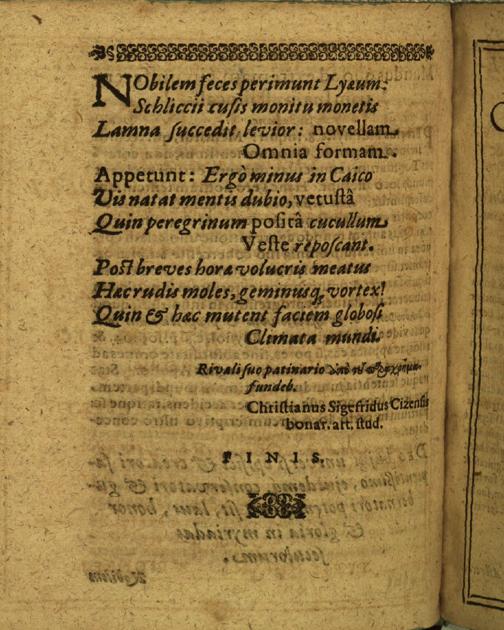 NObilem feces perimunt Lyæum:
Schliccii cusis monitu monetis
Lamna succedit levior: novellam
Omnia formam.
Appetunt: Ergò minus in Caico
Vis natat mentis dubio, vetustâ
Quin peregrinum positâ cucullum
Veste reposcant.
Post breves horæ volucris meatus
Hæc rudis moles, geminusq; vortex!
Quin & hæc mutent faciem globosi
Climata mundi.
Rivali suo patinario
fundeb.
Christianus Sigefridus Cizensis
bonar. art. stud.
FINIS.